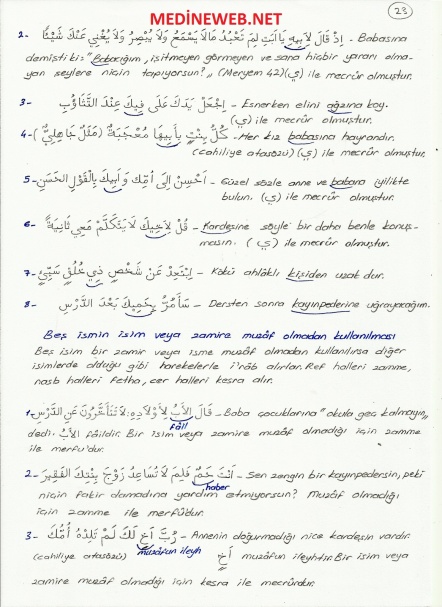 MEDİNEWEB.NET
23
2- إِذْ قَالَ لِأَبِيهِ يَاأَبَتِ لِمَ تَعْبُدُ مَالَا يَسْمَعُ وَلَا يُبْصِرُ وَلَا يُغْنِي عَنْكَ شَيْئًا - Babasına
demişti ki: "Babacığım, işitmeyen görmeyen ve sana hiçbir yararı olma-
yan şeylere niçin tapıyorsun?, (Meryem 42) (ي) ile mecrûr olmuştur.
3- اِجْعَلْ يَدَكَ عَلَى فِيكَ عِنْدَ التَّثَاؤُبِ - Esnerken elini ağzına koy.
(ي) ile mecrûr olmuştur.
4- كُلُّ بِنْتٍ بِأَبِيهَا مُعْجَبَةٌ (مَثَلٌ جَاهِلِيٌّ) - Her kız babasına hayrandır.
(cahiliye atasözü) (ي) ile mecrûr olmuştur.
5- اَحْسِنْ إِلَى أُمِّكَ وَأَبِيكَ بِالْقَوْلِ الْحَسَنِ - Güzel sözle anne ve babana iyilikte
bulun. (ي) ile mecrûr olmuştur.
6- قُلْ لِأَخِيكَ لَا يَتَكَلَّمْ مَعِي ثَانِيَةً - Kardeşine söyle bir daha benle konuş-
masın. (ي) ile mecrûr olmuştur.
7- اِبْتَعِدْ عَنْ شَخْصٍ ذِي خُلُقٍ سَيِّئٍ - Kötü ahlâklı kişiden uzak dur.
8- سَأَمُرُّ بِحَمِيكَ بَعْدَ الدَّرْسِ - Dersten sonra kayınpederine uğrayacağım.
Beş ismin isim veya zamire muzâf olmadan kullanılması
Beş isim bir zamir veya isme muzâf olmadan kullanılırsa diğer
isimlerde olduğu gibi harekelerle i'râb alırlar. Ref halleri zamme,
nasb halleri fetha, cer halleri kesra alır.
1- قَالَ الْأَبُ لِأَوْلَادِهِ: لَا تَتَأَخَّرُونَ عَنِ الدَّرْسِ - Baba çocuklarına "okula geç kalmayın"
fâil
dedi. الْأَبُ fâildir. Bir isim veya zamire muzâf olmadığı için zamme
ile merfu'dur.
2- أَنْتَ حَمٌ فَلِمَ لَا تُسَاعِدُ زَوْجَ بِنْتِكَ الْفَقِيرَ - Sen zengin bir kayınpedersin, peki
haber
niçin fakir damadına yardım etmiyorsun? Muzâf olmadığı
için zamme ile merfûdur.
3- رُبَّ أَخٍ لَكَ لَمْ تَلِدْهُ أُمُّكَ - Annenin doğurmadığı nice kardeşin vardır.
(cahiliye atasözü) muzâfun ileyh أَخٍ muzâfun ileyhtir. Bir isim veya
zamire muzâf olmadığı için kesra ile mecrûrdur.